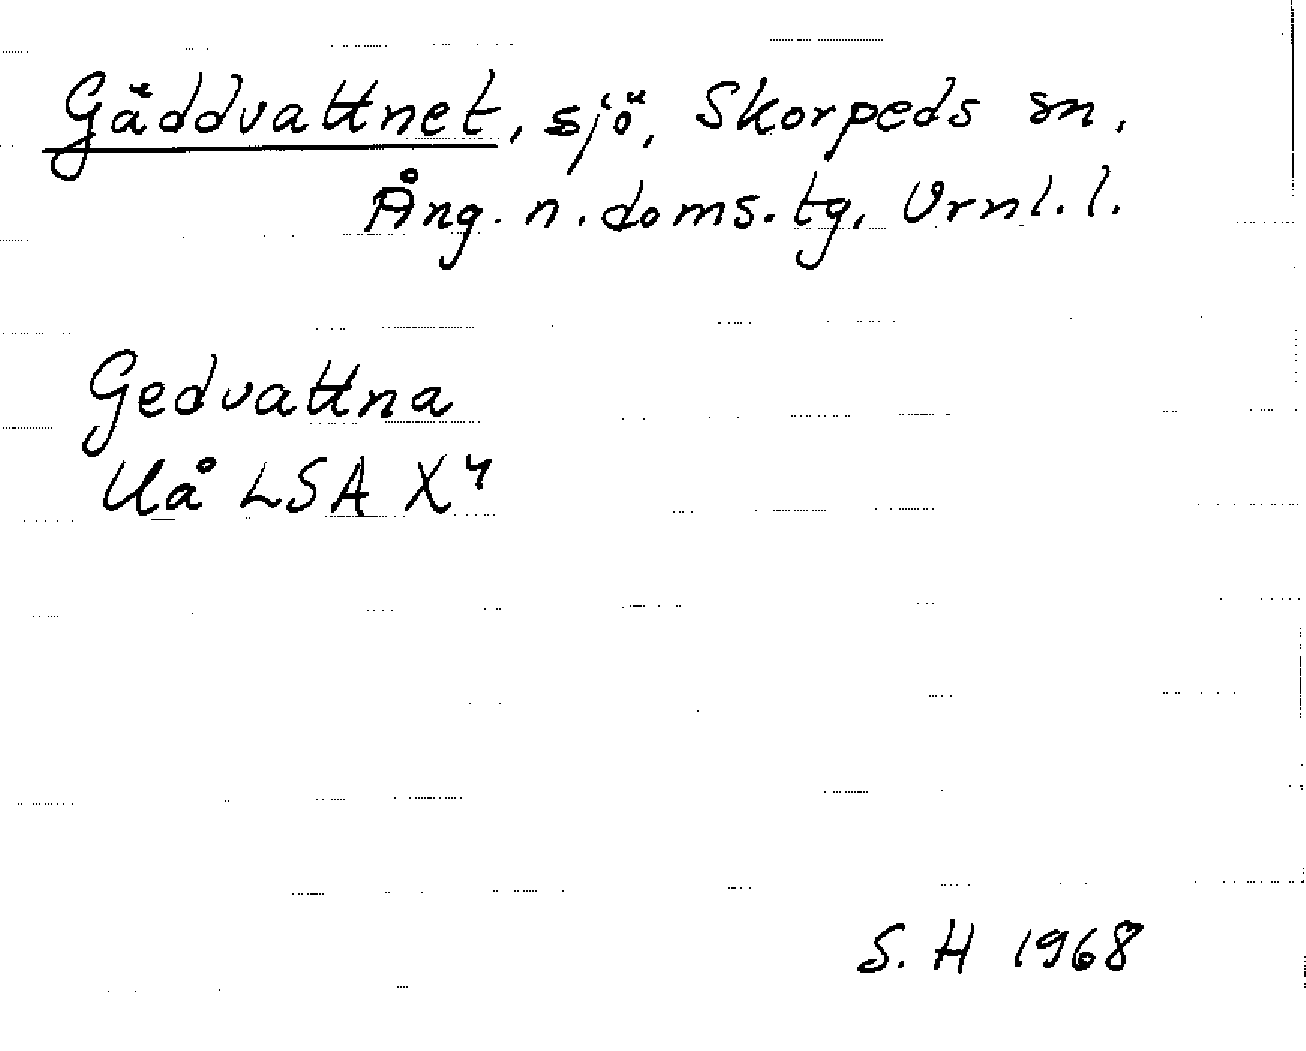 Gäddvattnet, sjö, Skorpeds sn,
Ång. n. doms. tg, Vrnl. l.
Gedvattna
Uå LSA X4
S. H 1968